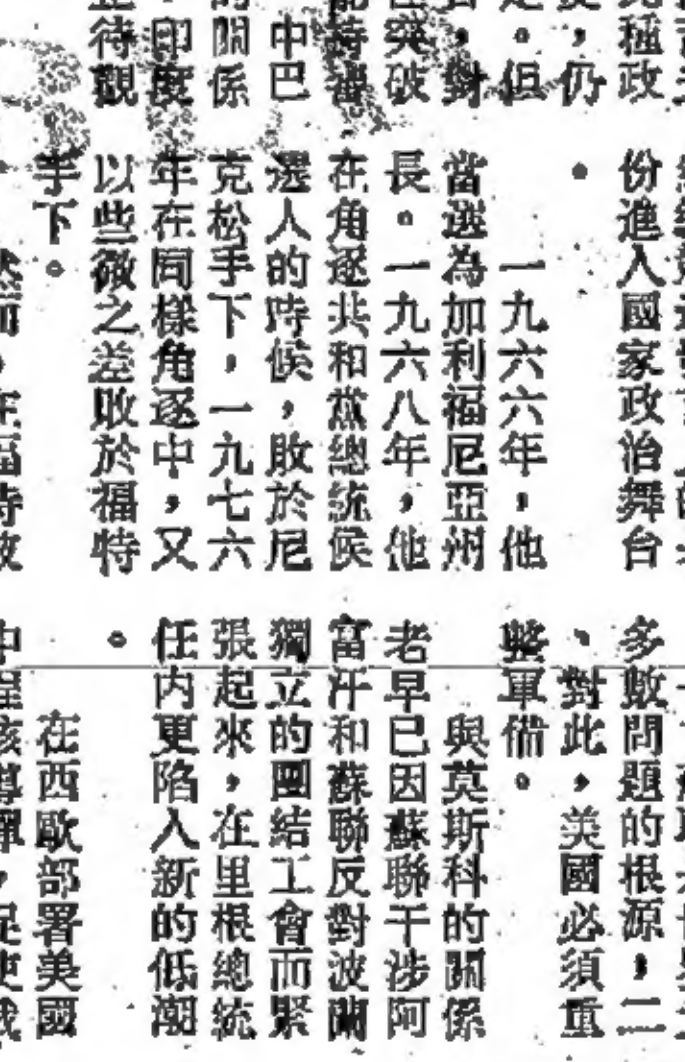 種政
,仍
。但
,對
突破
中巴
關係
印度
待觀
份進入國家政治舞台
。
一九六六年,他
當選為加利福尼亞州
長。一九六八年,他
在角逐共和黨總統候
選人的時候,敗於尼
克松手下,一九七六
年在同樣角逐中,又
以些微之差敗於福特
手下。
然而,在福特敗
多數問題的根源,二
、對此,美國必須重
整軍備。
與莫斯科的關係
老早已因蘇聯干涉阿
富汗和蘇聯反對波蘭
獨立的團結工會而緊
張起來,在里根總統
任內更陷入新的低潮
。
在西歐部署美國
中程核導彈,促使